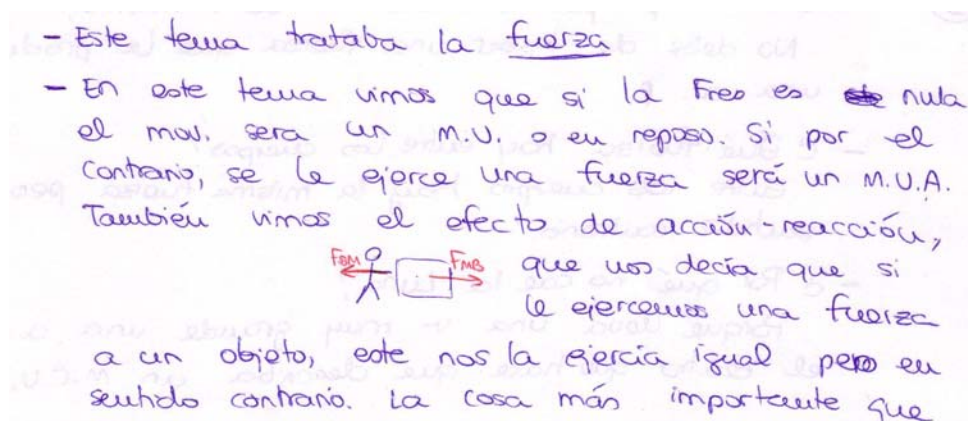 - Este tema trataba la fuerza
- En este tema vimos que si la Fres es nula
el mov. sera un M.U. o en reposo. Si por el
contrario, se le ejerce una fuerza será un M.U.A.
También vimos el efecto de acción-reacción,
FBM FMB que nos decía que si
le ejercemos una fuerza
a un objeto, este nos la ejercía igual pero en
sentido contrario. La cosa más importante que